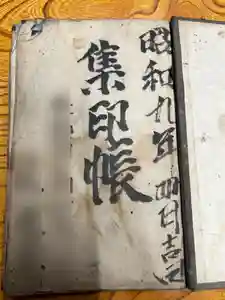 昭和九年四月吉日
集印帳